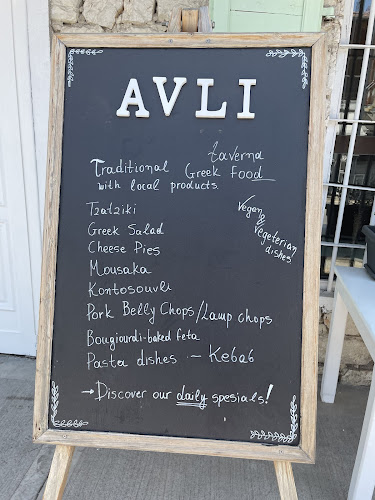 AVLI
taverna
Traditional Greek Food
with local products.
Vegan
&
vegeterian
dishes!
Tzatziki
Greek Salad
Cheese Pies
Mousaka
Kontosouvli
Pork Belly Chops/Lamp chops
Bougiourdi-baked feta
Pasta dishes - Kebab
→Discover our daily spesials!